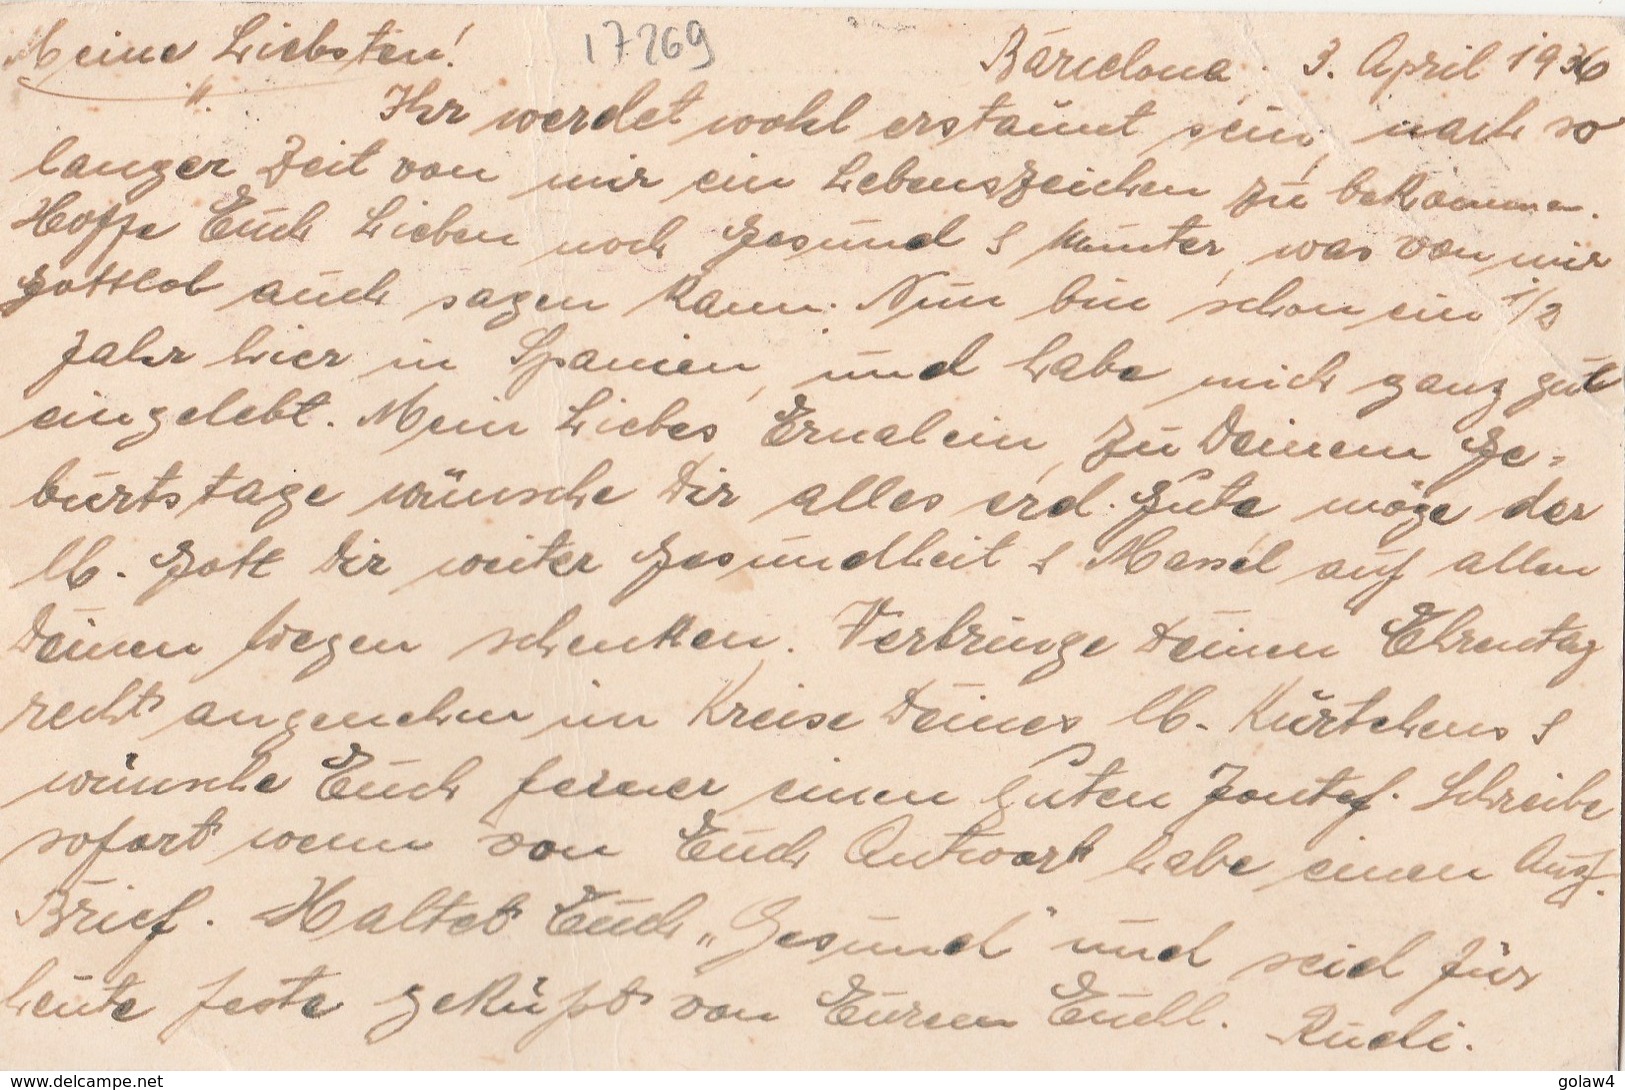 Meine Liebsten!
17269
Barcelona. 3. April 1936
Ihr werdet wohl erstaunt sein, nach so
langer Zeit von mir ein Lebenszeichen zu bekommen.
Hoffe Euch Lieben noch gesund & munter, was von mir
gottlob auch sagen kann. Nun bin schon ein 1/2
Jahr hier in Spanien, und habe mich ganz gut
eingelebt. Mein Liebes Ernalein, zu Deinem Ge-
burtstage wünsche Dir alles erd. Gute möge der
lb. Gott Dir weiter Gesundheit & Massel auf allen
Deinen Wegen schenken. Verbringe Deinen Ehrentag
recht angenehm im Kreise Deines lb. Kürtchens &
wünsche Euch ferner einen Guten Jontof. Schreibe
sofort wenn von Euch Antwort habe einen Ausf.
Brief. Haltet Euch „Gesund" und seid für
heute feste geküßt von Euren Euchl.
Rudi.
www.delcampe.net
golaw4